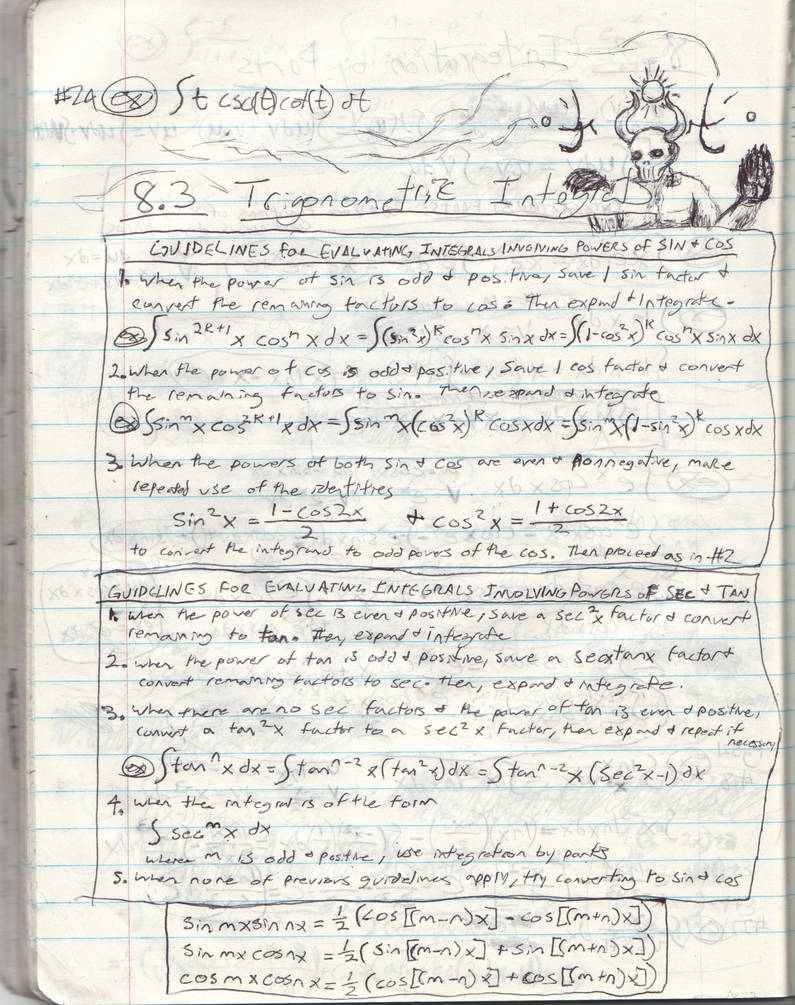 #24 ex ∫ t csc(t) cot(t) dt
8.3 Trigonometric Integrals
GUIDELINES FOR EVALUATING INTEGRALS INVOLVING POWERS OF SIN & COS
1. When the power of sin is odd & positive, save 1 sin factor &
convert the remaining factors to cos. Then expand & integrate.
ex ∫ sin^{2k+1} x cos^n x dx = ∫(sin²x)^k cos^n x sin x dx = ∫(1-cos²x)^k cos^n x sin x dx
2. When the power of cos is odd & positive, save 1 cos factor & convert
the remaining factors to sin. Then, expand & integrate
ex ∫ sin^m x cos^{2k+1} x dx = ∫ sin^m x (cos²x)^k cos x dx = ∫ sin^m x (1-sin²x)^k cos x dx
3. When the powers of both sin & cos are even & nonnegative, make
repeated use of the identities
sin²x = (1-cos2x)/2 & cos²x = (1+cos2x)/2
to convert the integrand to odd powers of the cos. Then proceed as in #2
GUIDELINES FOR EVALUATING INTEGRALS INVOLVING POWERS OF SEC & TAN
1. When the power of sec is even & positive, save a sec²x factor & convert
remaining to tan. Then, expand & integrate
2. When the power of tan is odd & positive, save a secxtanx factor &
convert remaining factors to sec. Then, expand & integrate.
3. When there are no sec factors & the power of tan is even & positive,
convert a tan²x factor to a sec²x factor, then expand & repeat if
necessary
ex ∫ tan^n x dx = ∫ tan^{n-2} x (tan²x) dx = ∫ tan^{n-2} x (sec²x-1) dx
4. When the integral is of the form
∫ sec^m x dx
where m is odd & positive, use integration by parts
5. When none of previous guidelines apply, try converting to sin & cos
sin mx sin nx = 1/2 (cos[(m-n)x] - cos[(m+n)x])
sin mx cos nx = 1/2 (sin[(m-n)x] + sin[(m+n)x])
cos mx cos nx = 1/2 (cos[(m-n)x] + cos[(m+n)x])